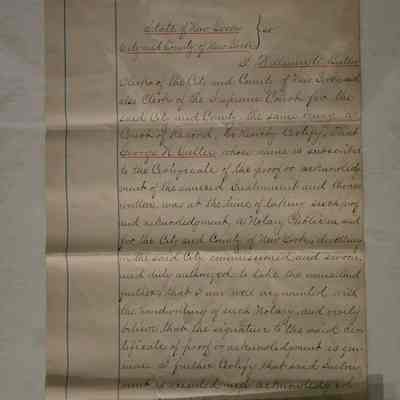 State of New York } ss
City and County of New York
I,
Clerk of the City and County of New York and
also Clerk of the Supreme Court for the
said City and County the same being a
Court of Record, do hereby Certify, That
George H. whose name is subscribed
to the Certificate of the proof or acknowledg-
ment of the annexed Instrument and thereon
written, was at the time of taking such proof
and acknowledgment, a Notary Public in and
for the City and County of New York, dwelling
in the said City, commissioned and sworn,
and duly authorized to take the same and
further, that I am well acquainted with
the handwriting of such Notary, and verily
believe, that the signature to the said Cer-
tificate of proof or acknowledgment is gen-
uine. I further Certify that said Instru-
ment is executed and acknowledged